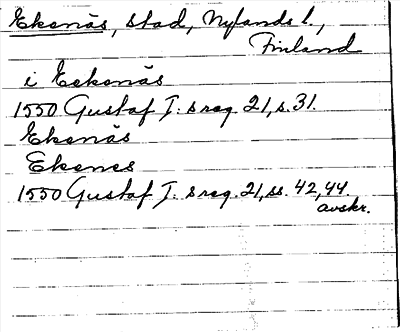 Ekenäs, stad, Nylands l.,
Finland
i Eekenäs
1550 Gustaf I:s reg. 21, s. 31.
Ekenäs
Ekenes
1550 Gustaf I:s reg. 21, ss. 42, 44.
avskr.